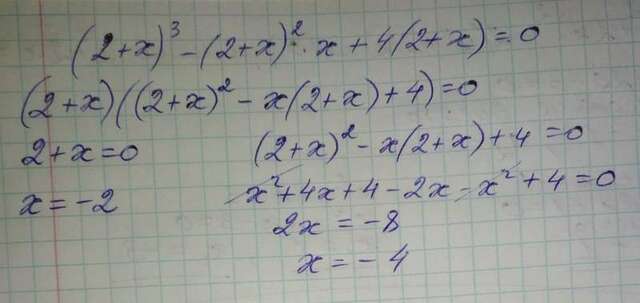 (2+x)³ - (2+x)² · x + 4(2+x) = 0
(2+x)((2+x)² - x(2+x) + 4) = 0
2+x=0 (2+x)² - x(2+x) + 4 = 0
x = -2 x² + 4x + 4 - 2x - x² + 4 = 0
2x = -8
x = -4